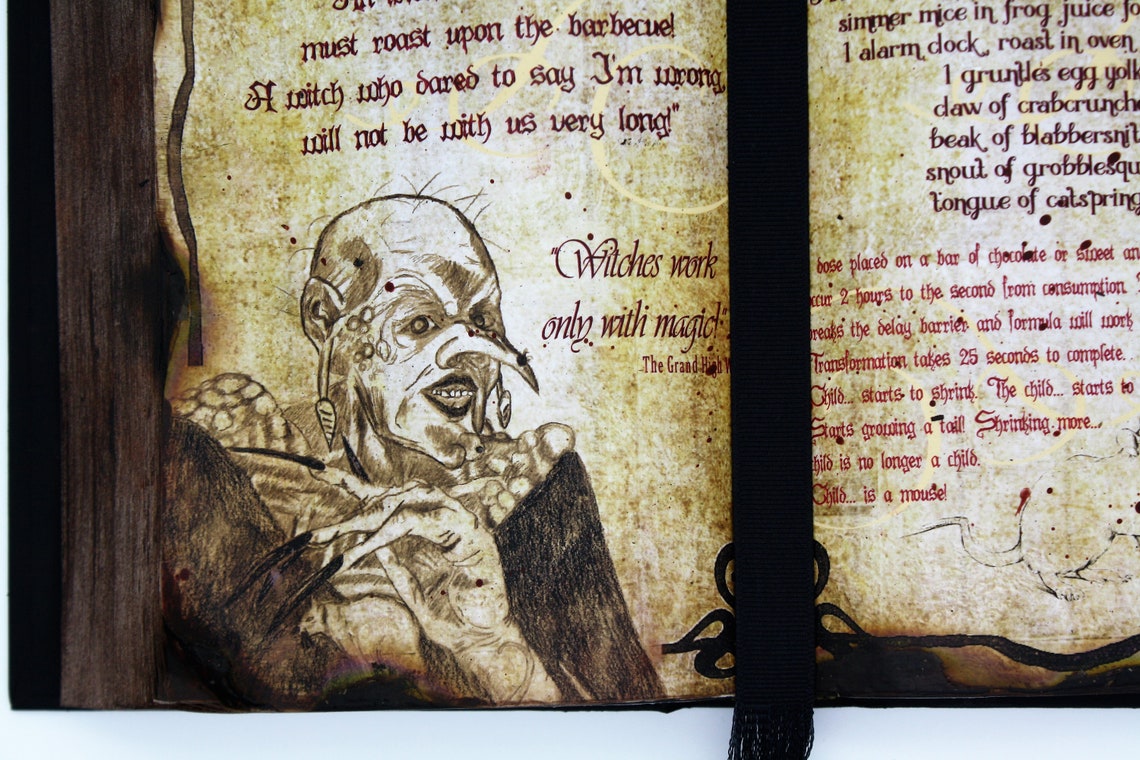 must roast upon the barbecue!
A witch who dared to say I'm wrong,
will not be with us very long!"
"Witches work
only with magic!"
The Grand High
simmer mice in frog juice
1 alarm clock, roast in oven
1 gruntles egg
claw of
beak of
snout of
tongue of
dose placed on a bar of chocolate or sweet
2 hours to the second from consumption
the delay barrier and formula will work
Transformation takes 25 seconds to complete..
Child... starts to shrink. The child... starts to
Starts growing a tail! Shrinking more...
is no longer a child.
Child... is a mouse!